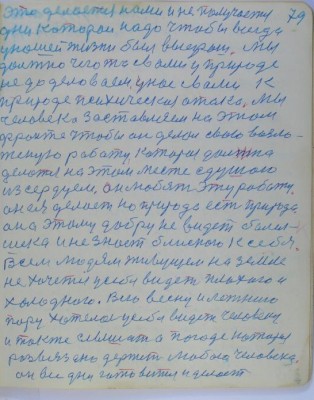 это делается нами и не получается 79
дни которой надо чтобы всегда
у нашей жизни были выиграш. Мы
должно часто свами у природе
не доделоваем, у нас свами к
природе психическая атака. Мы
человека заставляем на этом
фронте чтобы он делал свою возло-
женую работу. которая должна
делатся на этом месте с душою
и сердцем. он любят эту работу.
он ея делает но природа есть природа
она этому добру не видет
и не знает близкого к себя.
Всем людям живущем на земле
не хочется у себя видет плохого и
холодного. Всю весну и летнию
пору хателос у себя видет человеку
и также слышать о погоде которая
развязано держет любого человека.
он все дни готовится и делает